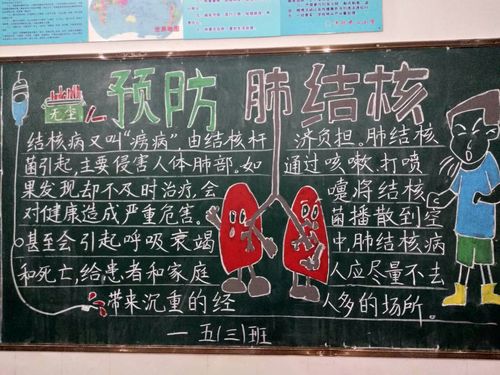 预防 肺结核
结核病又叫“痨病”,由结核杆
菌引起,主要侵害人体肺部。如
果发现却不及时治疗,会
对健康造成严重危害。
甚至会引起呼吸衰竭
和死亡,给患者和家庭
带来沉重的经
济负担。肺结核
通过咳嗽、打喷
嚏将结核
菌播散到空
中,肺结核病
人应尽量不去
人多的场所。
一五(三)班
世界地图